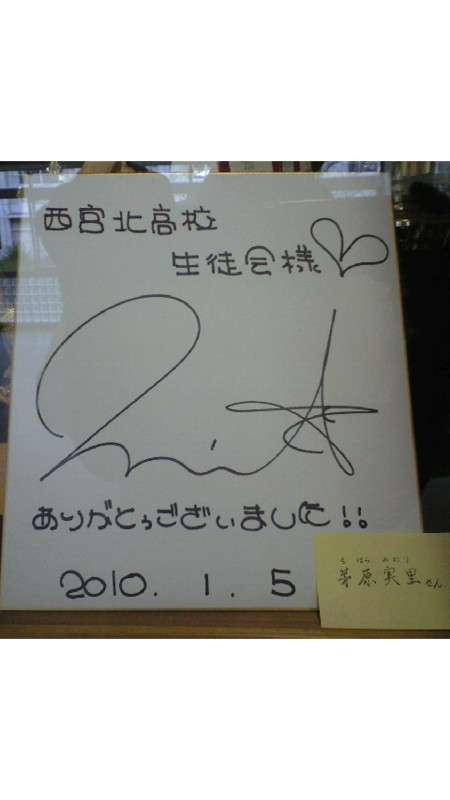 西宮北高校
生徒会様
ありがとうございました!!
2010.1.5
ち はら みのり
茅原実里さん